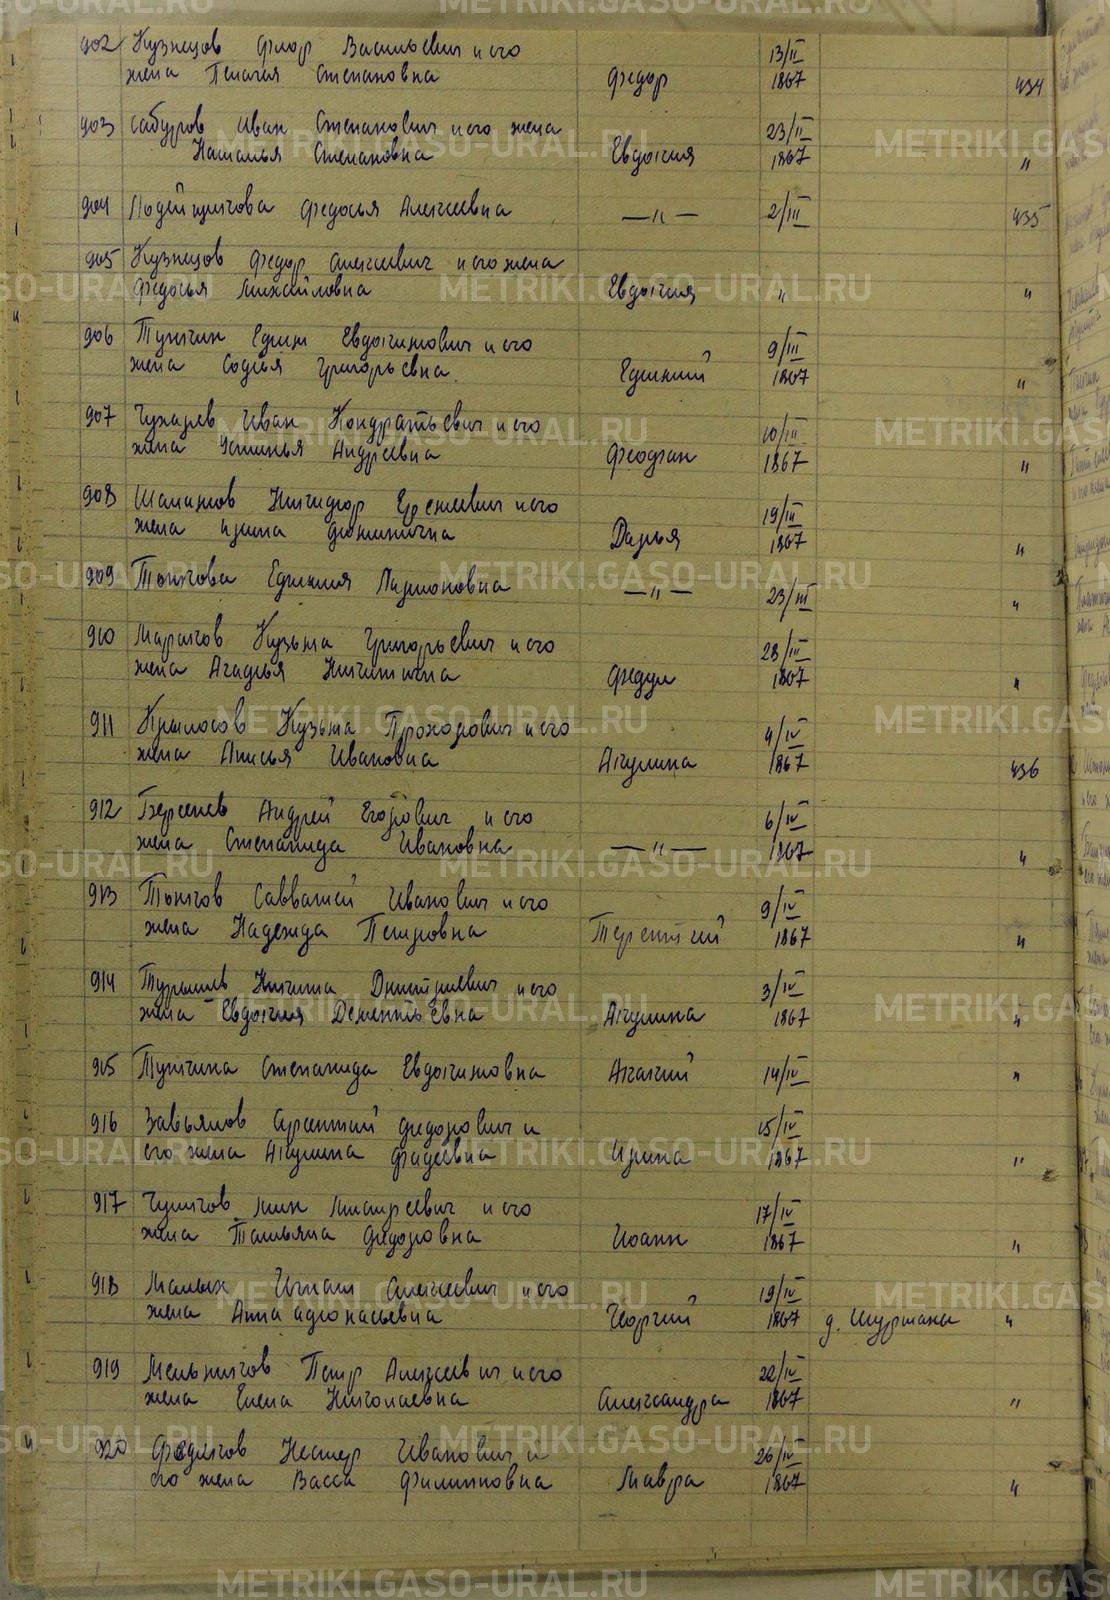 902 Кузнецов Флор Васильевич и его
жена Пелагея Степановна Федор 13/II 1867 434
903 Сабуров Иван Степанович и его жена
Наталья Степановна Евдокия 23/II 1867 "
904 Федосья Алексеевна —"— 2/III 435
905 Кузнецов Федор Алексеевич и его жена
Федосья Михайловна Евдокия " "
906 Тункин Ефим Евдокимович и его
жена Софья Григорьевна Ефимий 9/III 1867 "
907 Чухарев Иван Кондратьевич и его
жена Устинья Андреевна Феофан 10/III 1867 "
908 Никифор Еремеевич и его
жена Ирина Фоминична Дарья 19/III 1867 "
909 Ефимия Ларионовна —"— 23/III "
910 Марков Кузьма Григорьевич и его
жена Агафья Никитична Федул 28/III 1867 "
911 Крылосов Кузьма Прохорович и его
жена Анисья Ивановна Акулина 4/IV 1867 436
912 Берсенев Андрей Егорович и его
жена Степанида Ивановна —"— 6/IV 1867 "
913 Савватей Иванович и его
жена Надежда Петровна Терентий 9/IV 1867 "
914 Никита Дмитриевич и его
жена Евдокия Дементьевна Акулина 3/IV 1867 "
915 Тункина Степанида Евдокимовна Акакий 14/IV "
916 Завьялов Арсентий Федорович и
его жена Акулина Фадеевна Ирина 15/IV 1867 "
917 и его
жена Татьяна Федоровна Иоанн 17/IV 1867 "
918 Малых Игнат Алексеевич и его
жена Анна Афонасьевна Георгий 19/IV 1867 д. Шурманы "
919 Мельников Петр Алексеевич и его
жена Елена Николаевна Александра 22/IV 1867 "
920 Федяков Нестер Иванович и
его жена Васса Филипповна Мавра 26/IV 1867 "
METRIKI.GASO-URAL.RU